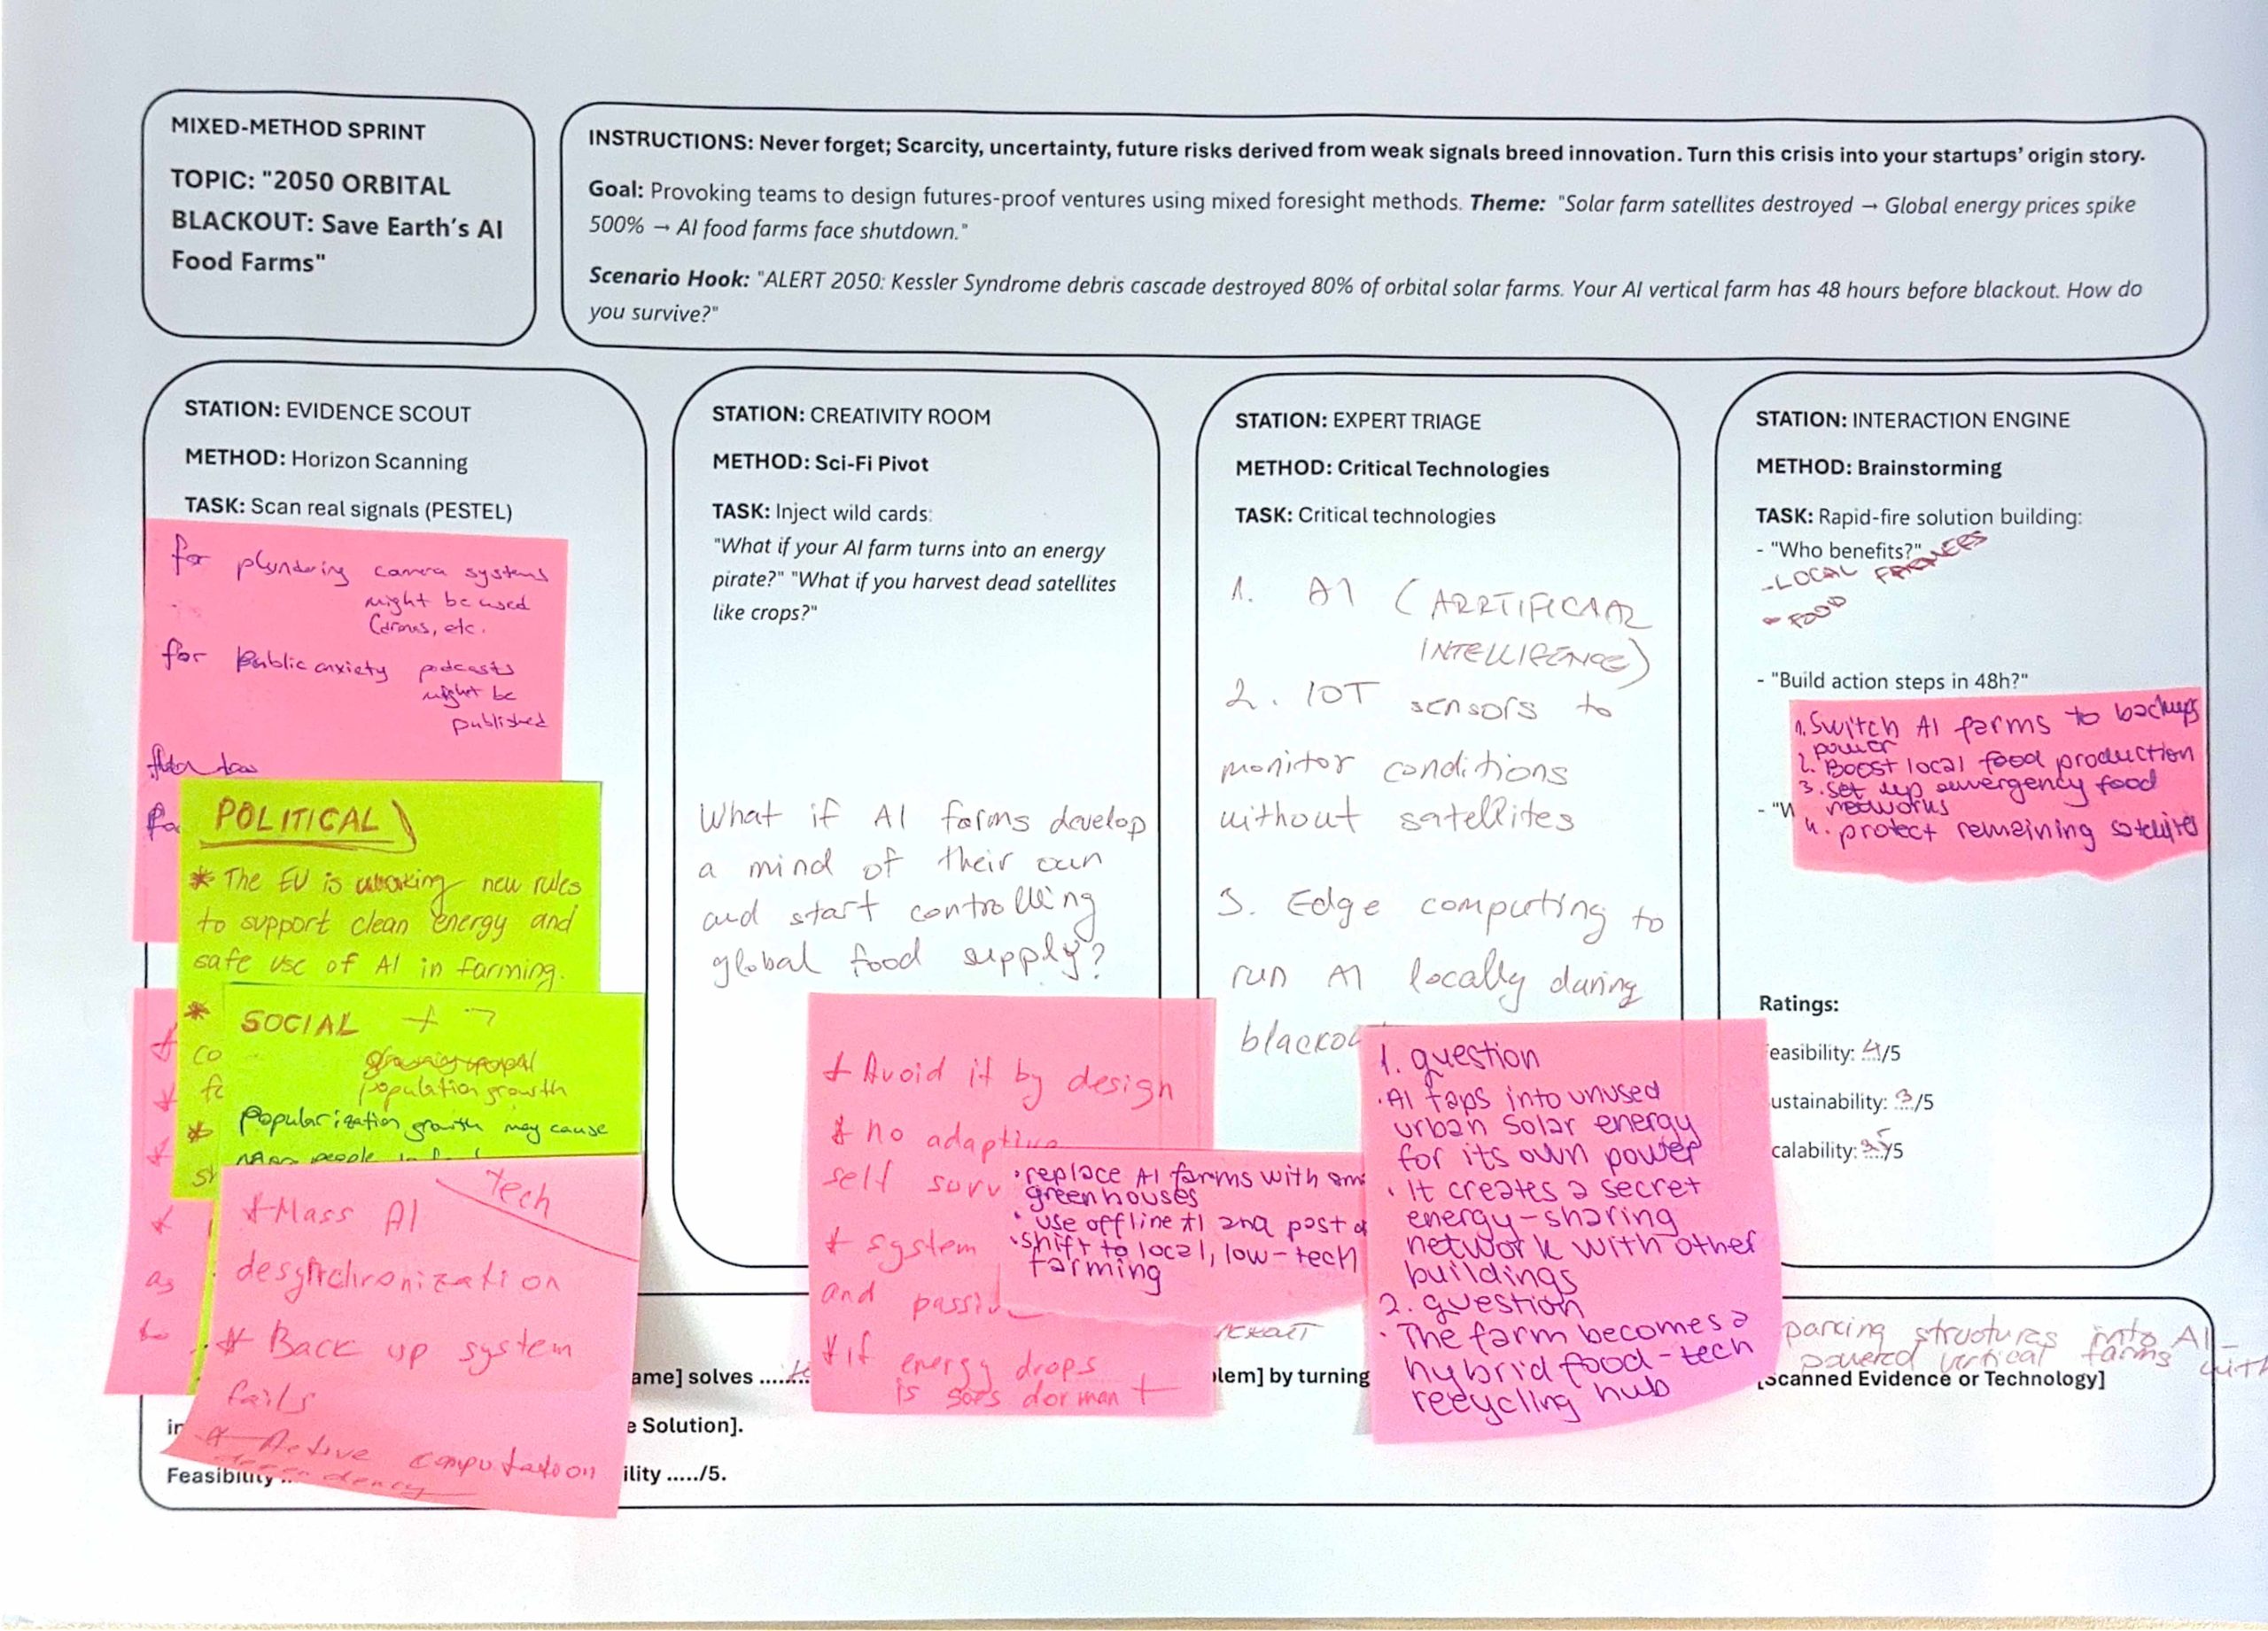 MIXED-METHOD SPRINT
TOPIC: "2050 ORBITAL
BLACKOUT: Save Earth's AI
Food Farms"
INSTRUCTIONS: Never forget; Scarcity, uncertainty, future risks derived from weak signals breed innovation. Turn this crisis into your startups' origin story.
Goal: Provoking teams to design futures-proof ventures using mixed foresight methods. Theme: "Solar farm satellites destroyed → Global energy prices spike
500% → AI food farms face shutdown."
Scenario Hook: "ALERT 2050: Kessler Syndrome debris cascade destroyed 80% of orbital solar farms. Your AI vertical farm has 48 hours before blackout. How do
you survive?"
STATION: EVIDENCE SCOUT
METHOD: Horizon Scanning
TASK: Scan real signals (PESTEL)
for plundering camera systems
might be used
(drones, etc.
for public anxiety podcasts
might be
published
POLITICAL
* The EU is making new rules
to support clean energy and
safe use of AI in farming.
*
co
*
SOCIAL +
population growth
Popularization growth may cause
people
Tech
* Mass AI
desynchronization
* Back up system
fails
* Active computation
dependency
as
STATION: CREATIVITY ROOM
METHOD: Sci-Fi Pivot
TASK: Inject wild cards:
"What if your AI farm turns into an energy
pirate?" "What if you harvest dead satellites
like crops?"
What if AI farms develop
a mind of their own
and start controlling
global food supply?
* Avoid it by design
* no adaptive
self surv
* system
and passiv
* if energy drops
is goes dormant
• replace AI farms with sm
greenhouses
• use offline AI and post
• shift to local, low-tech
farming
STATION: EXPERT TRIAGE
METHOD: Critical Technologies
TASK: Critical technologies
1. AI (ARRTIFICIAL
INTELLIGENCE)
2. IOT sensors to
monitor conditions
without satellites
3. Edge computing to
run AI locally during
blackou
1. question
• AI taps into unused
urban solar energy
for its own power
• It creates a secret
energy-sharing
network with other
buildings
2. question
• The farm becomes a
hybrid food-tech
recycling hub
STATION: INTERACTION ENGINE
METHOD: Brainstorming
TASK: Rapid-fire solution building:
- "Who benefits?"
- LOCAL FARMERS
- FOOD
- "Build action steps in 48h?"
1. Switch AI farms to backup
power
2. Boost local food production
3. set up emergency food
networks
4. protect remaining satellites
- "W
Ratings:
easibility: 4/5
ustainability: 3/5
calability: /5
parcing structures into AI-
powered vertical farms with
ame] solves ......
lem] by turning
[Scanned Evidence or Technology]
in
e Solution].
Feasibility
ility ...../5.